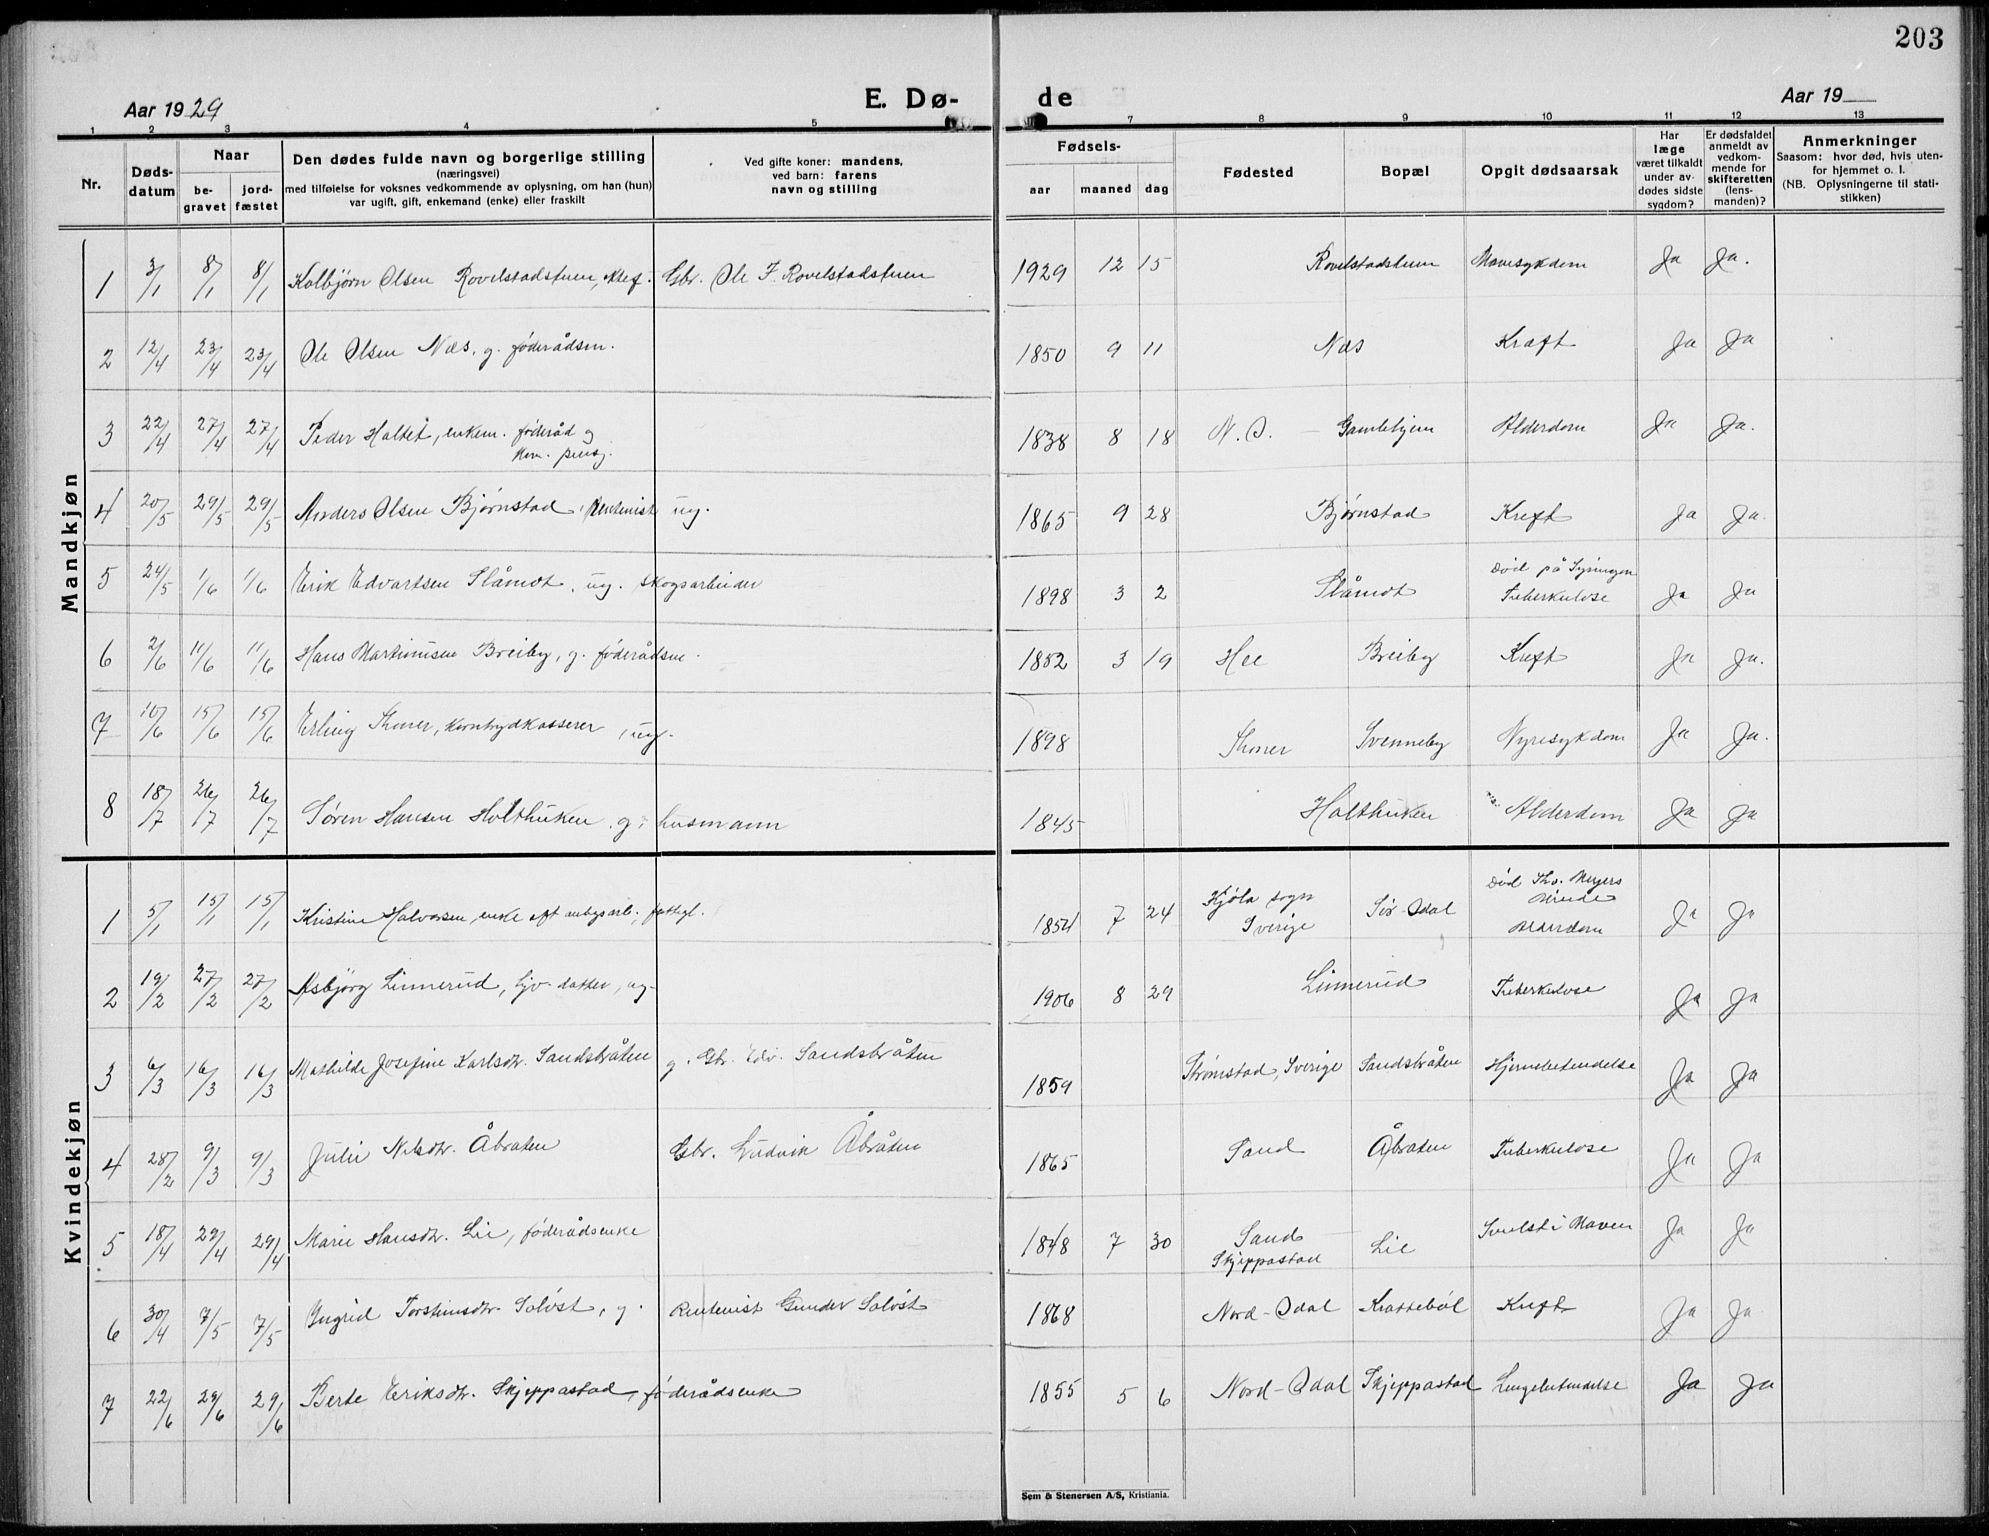 203
Aar 1929
E. Dø-
de
Aar 19
1 2 3 4 5 7 8 9 10 11 12 13
Nr.
Døds-
datum
Naar
be-
gravet
jord-
fæstet
Den dødes fulde navn og borgerlige stilling
(næringsvei)
med tilføielse for voksnes vedkommende av oplysning, om han (hun)
var ugift, gift, enkemand (enke) eller fraskilt
Ved gifte koner: mandens,
ved barn: farens
navn og stilling
Fødsels-
aar maaned dag
Fødested
Bopæl
Opgit dødsaarsak
Har
læge
været tilkaldt
under av-
dødes sidste
sygdom?
Er dødsfaldet
anmeldt av
vedkom-
mende for
skifteretten
(lens-
manden)?
Anmerkninger
Saasom: hvor død, hvis uten-
for hjemmet o. l.
(NB. Oplysningerne til stati-
stikken)
Mandkjøn
1 3/1 8/1 8/1 Kolbjørn Olsen Rovelstadstuen, Gbr. Ole F. Rovelstadstuen 1929 12 15 Rovelstadstuen Mavesykdom Ja Ja.
2 12/4 23/4 23/4 Ole Olsen Næs, g. føderådsm. 1850 9 11 Næs Kræft Ja Ja
3 22/4 27/4 27/4 Peder Haltet, enkem. føderåd og
kom. pensj.
1838 8 18 N. O. - Gamlehjem Alderdom Ja Ja.
4 20/5 29/5 29/5 Anders Olsen Bjørnstad, Rentenist ug. 1865 9 28 Bjørnstad Kreft Ja Ja.
5 24/5 1/6 1/6 Erik Edvartsen Slåmot, ug. skogsarbeider 1898 3 2 Slåmot
død på
Tuberkulose Ja Ja
6 2/6 11/6 11/6 Hans Martinusen Breiby, g. føderådsm. 1852 3 19 Hee Breiby Kreft Ja Ja.
7 10/6 15/6 15/6 Erling Thoner, Korntrydkasserer, ug. 1898 Thoner Svenneby Nyresykdom Ja Ja.
8 18/7 26/7 26/7 Søren Hansen Holthuken, g. husmann 1845 Holthuken Alderdom Ja Ja
Kvindekjøn
1 5/1 15/1 15/1 Kristine Halvorsen, enke eft. anlegsarb. fattigl. 1854 7 24
Kjøla sogn
Sverige
Sør-Odal
Død Tho. Meyers
Minde
Alderdom Ja Ja
2 19/2 27/2 27/2 Asbjørg Linnerud, Gjv. datter, ug. 1906 8 29 Linnerud Tuberkulose Ja Ja
3 6/3 16/3 16/3 Mathilde Josefine Karlsdtr. Sandsbråten g. Gbr. Edv. Sandsbråten 1859 Strømstad, Sverige Sandsbråten Hjernebetendelse Ja Ja
4 28/2 9/3 9/3 Julie Nilsdtr. Åbraten Gbr. Ludvik Åbråten 1865 Sand Åbraten Tuberkulose Ja Ja
5 18/4 29/4 29/4 Marie Hansdtr. Lie, føderådsenke 1848 7 30 Sand
Skjeppastad
Lie Svulst i Maven Ja Ja
6 30/4 7/5 7/5 Ingrid Torstensdtr. Soløst, g. Rentenist Gunder Soløst 1868 Nord-Odal Krattebøl Kreft Ja Ja
7 22/6 29/6 29/6 Berte Eriksdtr. Skjeppastad, føderådsenke 1855 5 6 Nord-Odal Skjeppastad Lungebetendelse Ja Ja
Sem & Stenersen A/S, Kristiania.